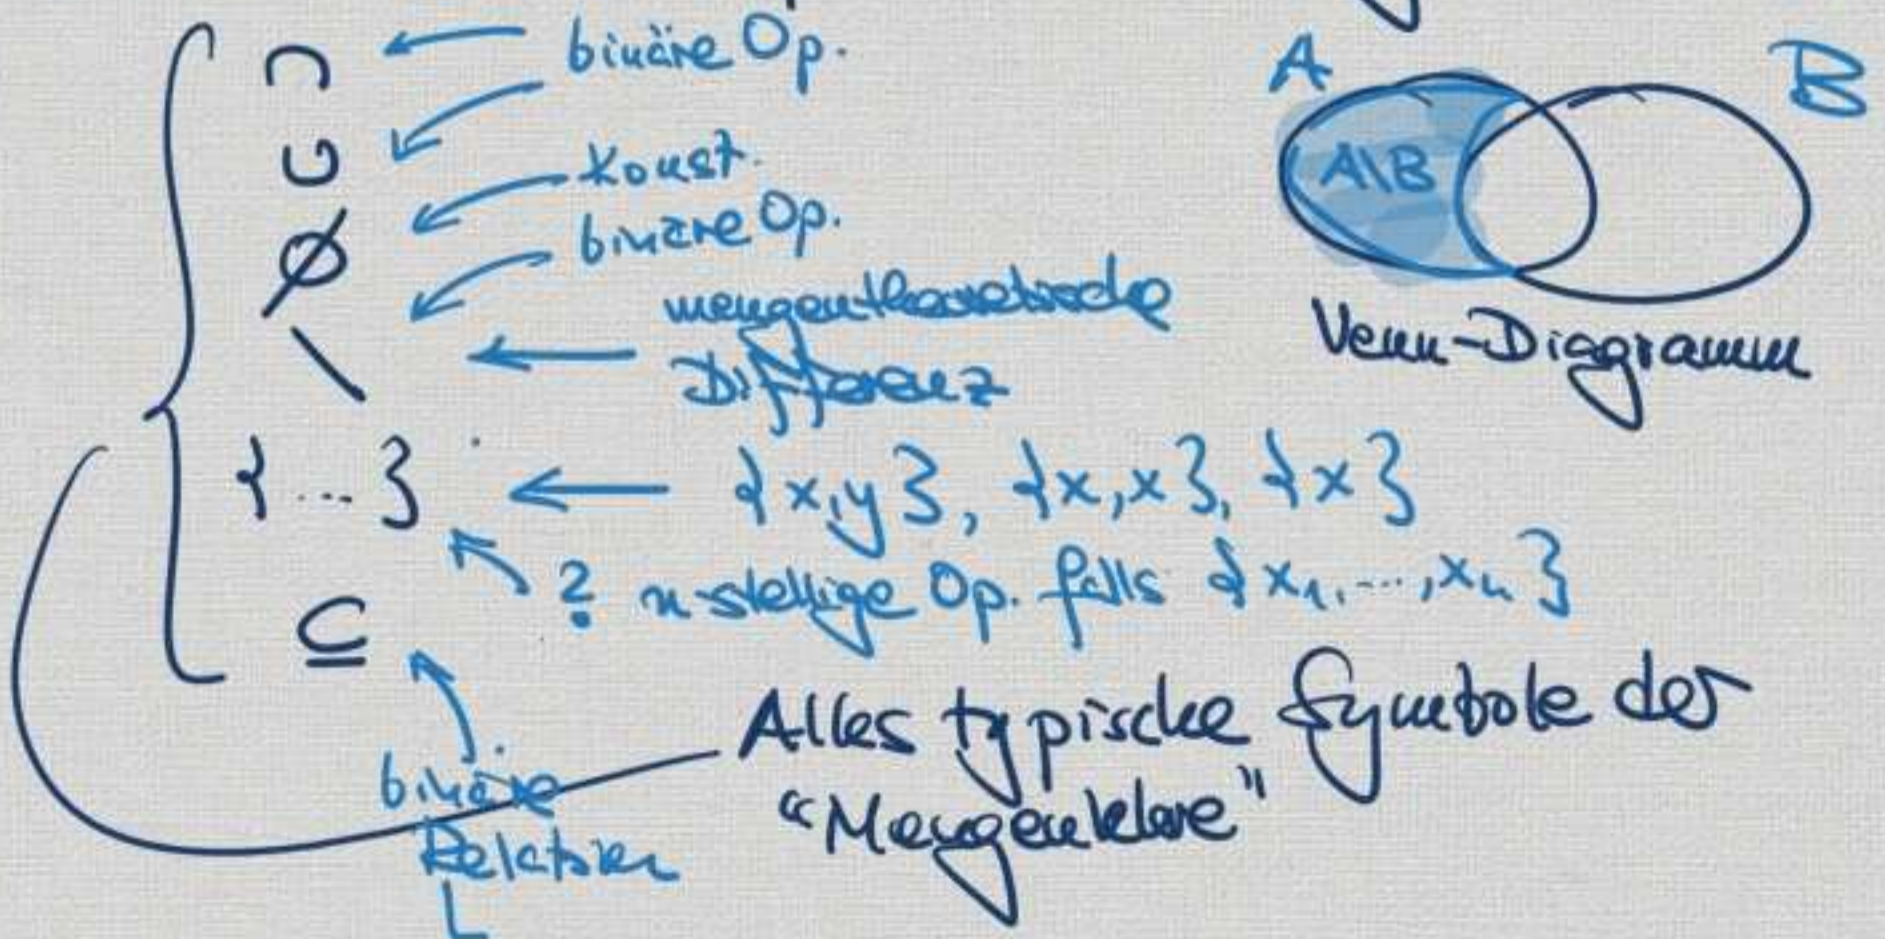 ∩ ← binäre Op.
∪
∅ ← Konst.
\ ← binäre Op.
← mengentheoretische
Differenz
{...} ← {x,y}, {x,x}, {x}
? n-stellige Op. falls {x₁,...,xₙ}
⊆
binäre
Relation
Alles typische Symbole der
“Mengenlehre”
A
B
A\B
Venn-Diagramm